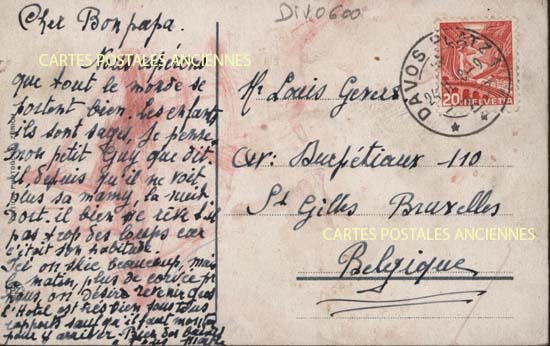 Cher Bonpapa.
Nous espérons
que tout le monde se
portent bien. Les enfants
ils sont sages, Je pense
mon petit Guy que dit-
il, depuis qu'il ne voit
plus sa mamy, la nuit
dort il bien ne rêve t'il
pas trop des loups car
c'était son habitude.
Ici on skie beaucoup, mais
le matin, plus de
nous, on désire revenir que
l'Hotel est très bien sous tous
rapports sauf qu'il faut monter
pour y arriver. Bien des baisers
DIV.0600
Mr Louis Gevers
Av: Ducpétiaux 110
St Gilles Bruxelles
Belgique
DAVOS PLATZ 1
20 HELVETIA
CARTES POSTALES ANCIENNES
CARTES POSTALES ANCIENNES